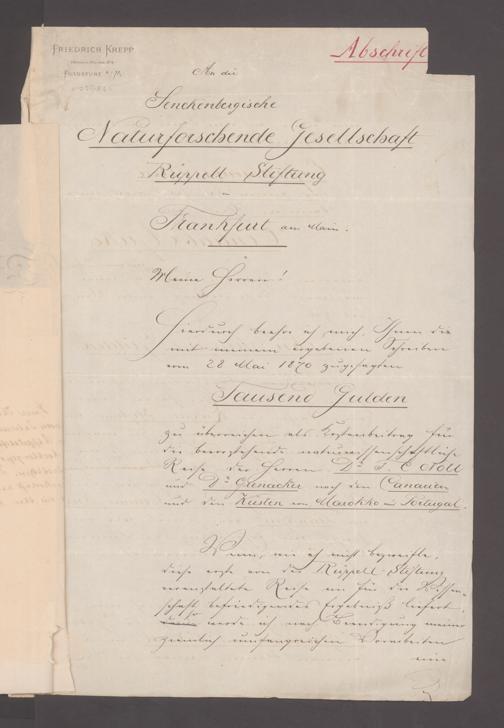 FRIEDRICH KREPP
FRANKFURT a/M
Abschrift
An die
Senckenbergische
Naturforschende Gesellschaft
Rüppell Stiftung
Frankfurt am Main.
Meine Herren!
Hierdurch beehre ich mich, Ihnen die
mit meinem ergebenen Schreiben
vom 28 Mai 1870 zugesagten
Tausend Gulden
zu überreichen als Kostenbeitrag für
die bevorstehende naturwissenschaftliche
Reise der Herren Dr. F. C. Noll
und Dr. Grenacher nach den Canarien
und den Küsten von Marokko u. Portugal.
Wenn, wie ich nicht bezweifle,
diese erste von der Rüppell-Stiftung
veranstaltete Reise ein für die Wissen-
schaft befriedigendes Ergebniß liefert,
werde ich nach Beendigung meiner
ziemlich umfangreichen Vorarbeiten
eine